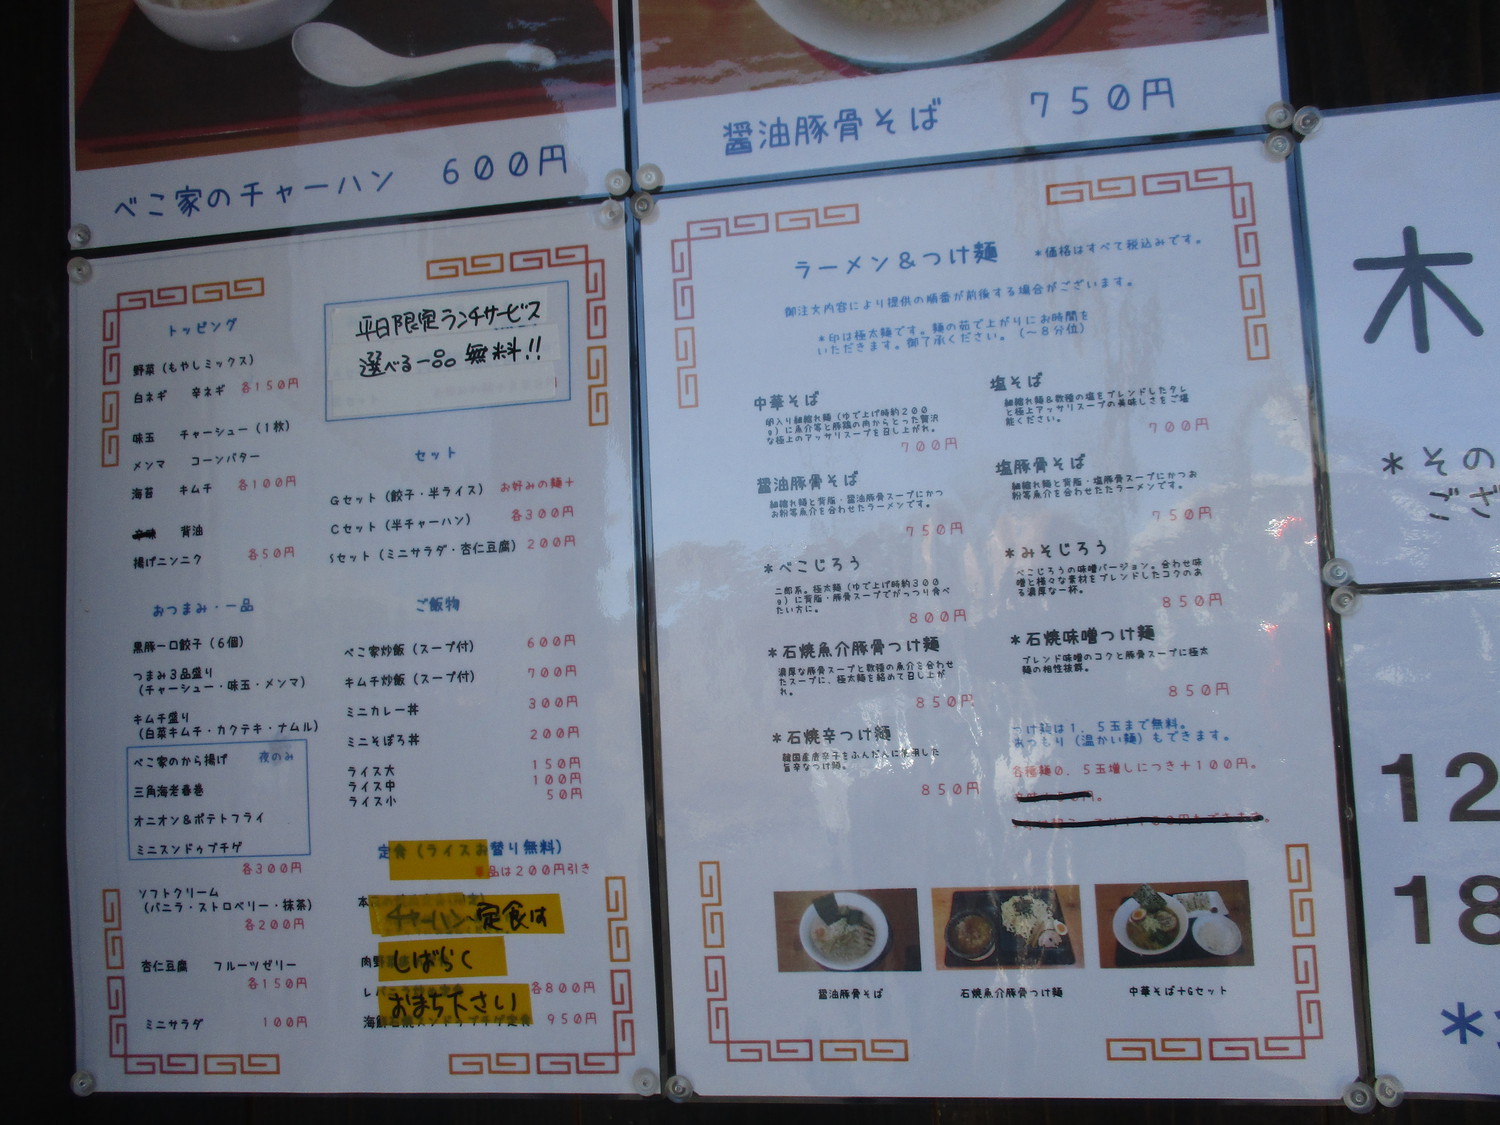 べこ家のチャーハン 600円
醤油豚骨そば 750円
トッピング
野菜（もやしミックス）
白ネギ 辛ネギ 各150円
味玉 チャーシュー（1枚）
メンマ コーンバター
海苔 キムチ 各100円
背油
揚げニンニク 各50円
おつまみ・一品
黒豚一口餃子（6個）
つまみ3品盛り
（チャーシュー・味玉・メンマ）
キムチ盛り
（白菜キムチ・カクテキ・ナムル）
べこ家のから揚げ 夜のみ
三角海老春巻
オニオン＆ポテトフライ
ミニスンドゥブチゲ
各300円
ソフトクリーム
（バニラ・ストロベリー・抹茶）
各200円
杏仁豆腐 フルーツゼリー
各150円
ミニサラダ 100円
平日限定ランチサービス
選べる一品 無料!!
セット
Gセット（餃子・半ライス） お好みの麺＋
Cセット（半チャーハン） 各300円
Sセット（ミニサラダ・杏仁豆腐） 200円
ご飯物
べこ家炒飯（スープ付） 600円
キムチ炒飯（スープ付） 700円
ミニカレー丼 300円
ミニそぼろ丼 200円
ライス大 150円
ライス中 100円
ライス小 50円
定食（ライスお替り無料）
単品は200円引き
チャーハン定食は
しばらく
おまち下さい
各800円
海鮮石焼スンドゥブチゲ定食 950円
ラーメン＆つけ麺 ＊価格はすべて税込みです。
御注文内容により提供の順番が前後する場合がございます。
＊印は極太麺です。麺の茹で上がりにお時間を
いただきます。御了承ください。（～8分位）
中華そば
卵入り細縮れ麺（ゆで上げ時約200
g）に魚介等と豚鶏の肉からとった贅沢
な極上のアッサリスープを召し上がれ。
700円
醤油豚骨そば
細縮れ麺と背脂・醤油豚骨スープにかつ
お粉等魚介を合わせたラーメンです。
750円
＊べこじろう
二郎系。極太麺（ゆで上げ時約300
g）に背脂・豚骨スープでがっつり食べ
たい方に。
800円
＊石焼魚介豚骨つけ麺
濃厚な豚骨スープと数種の魚介を合わせ
たスープに、極太麺を絡めて召し上が
れ。
850円
＊石焼辛つけ麺
韓国産唐辛子をふんだんに使用した
旨辛なつけ麺。
850円
塩そば
細縮れ麺＆数種の塩をブレンドしたタレ
と極上アッサリスープの美味しさをご堪
能ください。
700円
塩豚骨そば
細縮れ麺と背脂・塩豚骨スープにかつお
粉等魚介を合わせたたラーメンです。
750円
＊みそじろう
べこじろうの味噌バージョン。合わせ味
噌と様々な素材をブレンドしたコクのあ
る濃厚な一杯。
850円
＊石焼味噌つけ麺
ブレンド味噌のコクと豚骨スープに極太
麺の相性抜群。
850円
つけ麺は1.5玉まで無料。
あつもり（温かい麺）もできます。
各種麺0.5玉増しにつき＋100円。
醤油豚骨そば
石焼魚介豚骨つけ麺
中華そば＋Gセット
木
＊その
ござ
12
18
＊